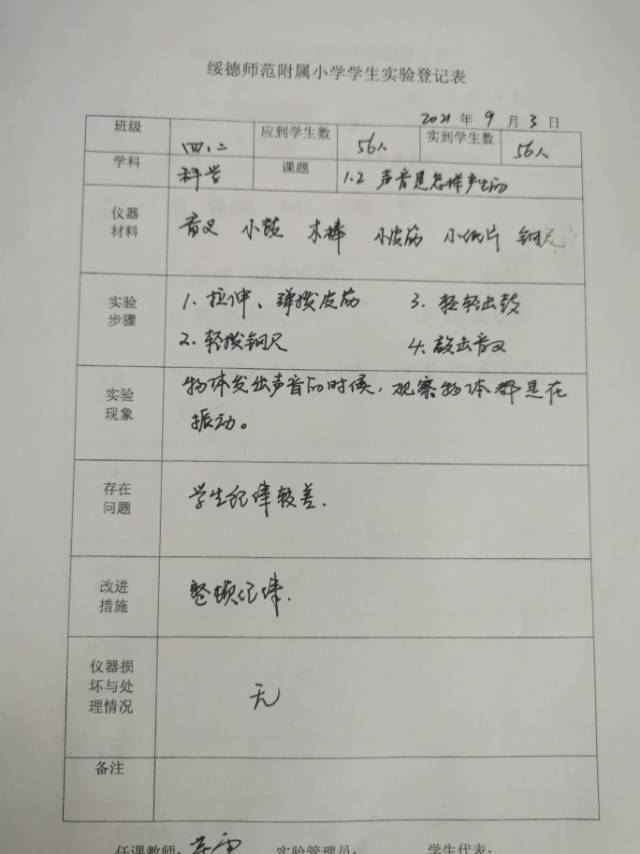 绥德师范附属小学学生实验登记表
2021年9月3日
班级 四.二 应到学生数 56人 实到学生数 56人
学科 科学 课题 1.2 声音是怎样产生的
仪器材料 音叉 小鼓 木棒 小皮筋 小纸片 钢尺
实验步骤 1. 拉伸、弹拨皮筋 3. 轻轻击鼓
2. 轻拨钢尺 4. 敲击音叉
实验现象 物体发出声音的时候,观察物体都是在
振动。
存在问题 学生纪律较差.
改进措施 整顿纪律.
仪器损坏与处理情况 无
备注
任课教师: 实验管理员: 学生代表: